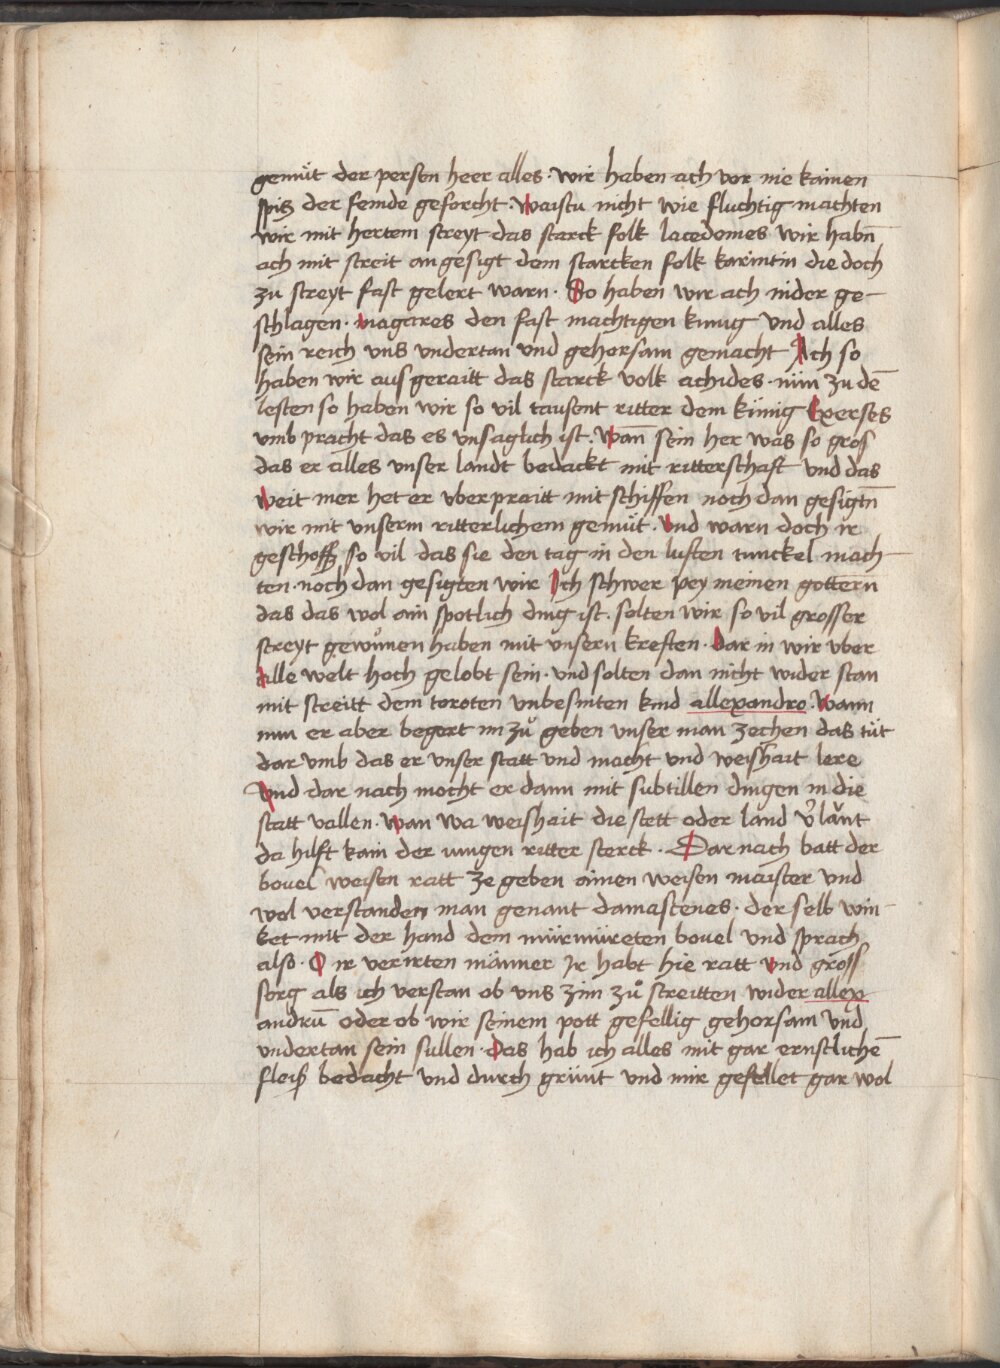 gemüt der person heer alles · wir haben ach vor nie kainen
spiß der feinde geforcht · Waistu nicht wie fluchtig machten
wir mit hertem streyt das starck folk lacedemes wir habn̄
ach mit streit angesigt dem starcken folk karintin die doch
zu streyt fast gelert warn · So haben wir ach nider ge-
schlagen · magares den fast machtigen kunig Vnd alles
sein reich vns vndertan vnd gehorsam gemacht Ach so
haben wir aus geraitt das starck volk achides · nün zu dē
lesten so haben wir so vil tausent ritter dem künig Exerses
vmb pracht das es vnsaglich ist · Wan̄ sein her was so gros
das er alles vnser landt bedackt mit ritterschaft vnd das
weit mer het er vber praitt mit schiffen noch dan gesigtn̄
wir mit vnserm ritterlichem gemüt · Vnd warn doch ir
geschoß so vil das sie den tag in den luften tunckel mach-
ten · noch dan gesigten wir Ich schwer pey meinen gottern
das das wol ain spotlich ding ist · solten wir so vil grosser
streyt gewun̄en haben mit vnsern kreften · Dar in wir vber
alle welt hoch gelobt sein · vnd solten dan nicht wider stan
mit streitt dem toroten vnbesinten kind allexandro · Wann
nun er aber begert im zů geben vnser man zechen das tüt
dar vmb das er vnser statt vnd macht vnd weishait lere
Vnd dar nach mocht er dann mit subtillen dingen in die
statt vallen · Wan wa weishait die stett oder land v̉lant
da hilft kain der iungen ritter sterck · Dar nach batt der
bouel weisen ratt ze geben ainen weisen maister vnd
wol verstanden man genant damastenes · der selb win-
ket mit der hand dem mürmüreten bouel vnd sprach
also · O ir verirten männer Ir habt hie ratt vnd gross
sorg als ich verstan ob vns zim zů streitten wider allex
andrū oder ob wir seinem pott gefellig gehorsam vnd
vndertan sein sullen · Das hab ich alles mit gar ernstlichē
fleiß bedacht vnd durch grünt vnd mir gefellet gar wol